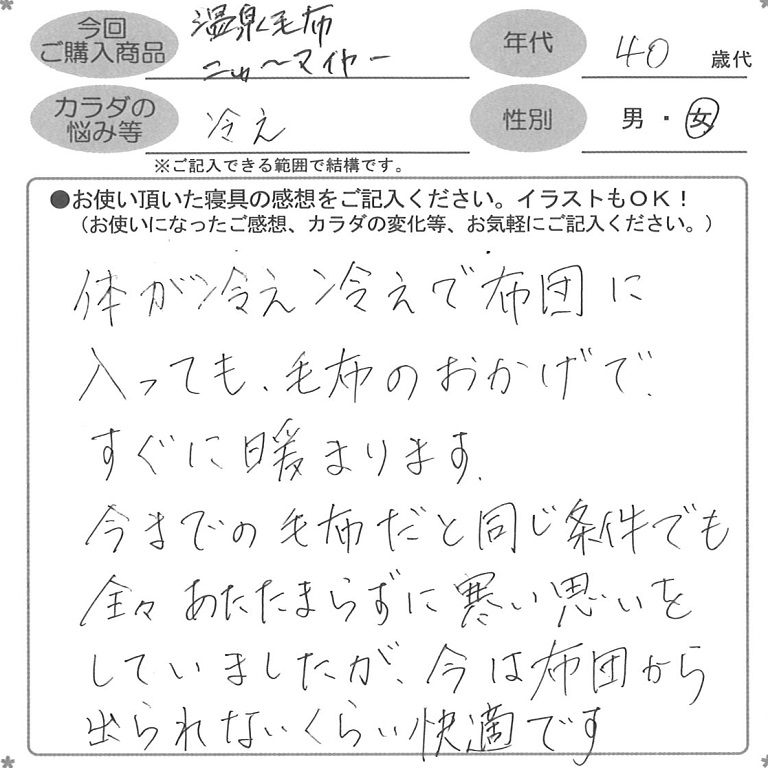 今回
ご購入商品
温泉毛布
ニューマイヤー
年代
40 歳代
カラダの
悩み等
冷え
性別
男・女
※ご記入できる範囲で結構です。
●お使い頂いた寝具の感想をご記入ください。イラストもOK！
（お使いになったご感想、カラダの変化等、お気軽にご記入ください。）
体が冷え冷えで布団に
入っても、毛布のおかげで、
すぐに暖まります。
今までの毛布だと同じ条件でも
全々あたたまらずに寒い思いを
していましたが、今は布団から
出られないくらい快適です